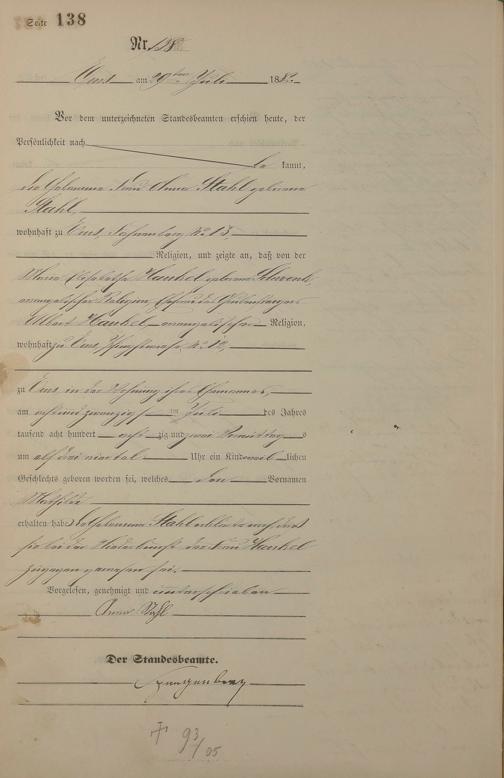 Seite 138
Nr. 138
Ems am 29ten Juli 1882.
Vor dem unterzeichneten Standesbeamten erschien heute, der
Persönlichkeit nach
be kannt,
die Hebamme Frau Anna Stahl geborene
Stahl,
wohnhaft zu Ems, No 13,
Religion, und zeigte an, daß von der
Maria Elisabetha Hankel geborene
evangelischer Religion, Ehefrau des
Albert Hankel evangelischer Religion,
wohnhaft zu Ems, No 12,
zu Ems in der Wohnung ihres Ehemannes,
am acht und zwanzigsten Juli des Jahres
tausend acht hundert acht zig und zwei Vormittags
um elf drei viertel Uhr ein Kind weib lichen
Geschlechts geboren worden sei, welches den Vornamen
Mathilde
erhalten habe. Die Hebamme Stahl erklärte noch, daß
sie bei der Niederkunft der Frau Hankel
zugegen gewesen sei.
Vorgelesen, genehmigt und unterschrieben
Anna Stahl
Der Standesbeamte.
93/05